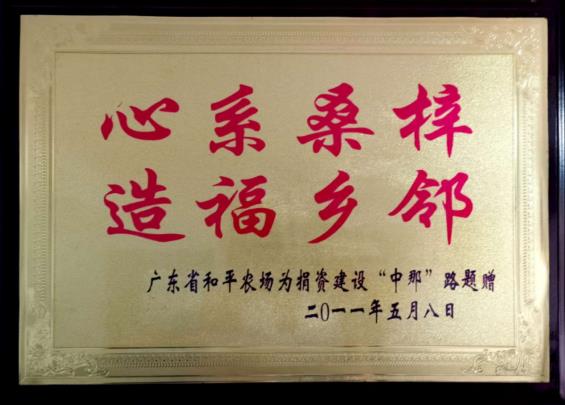 心系桑梓
造福乡邻
广东省和平农场为捐资建设“中那”路题赠
二0一一年五月八日